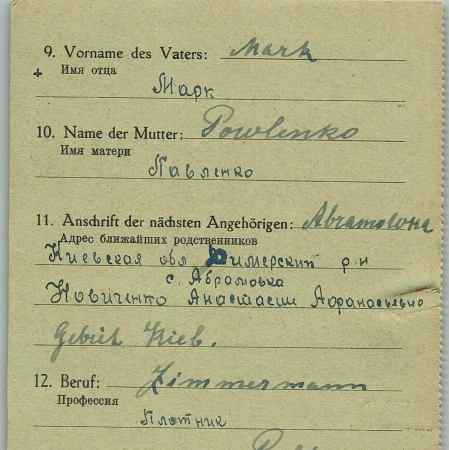 9. Vorname des Vaters: Mark
Имя отца
Марк
10. Name der Mutter: Powlenko
Имя матери
Павленко
11. Anschrift der nächsten Angehörigen: Abramowka
Адрес ближайших родственников
Киевская обл Димерский р-н
с. Абрамовка
Новиченко Анастасии Афанасьевно
Gebiet Kieb.
12. Beruf: Zimmermann
Профессия
Плотник